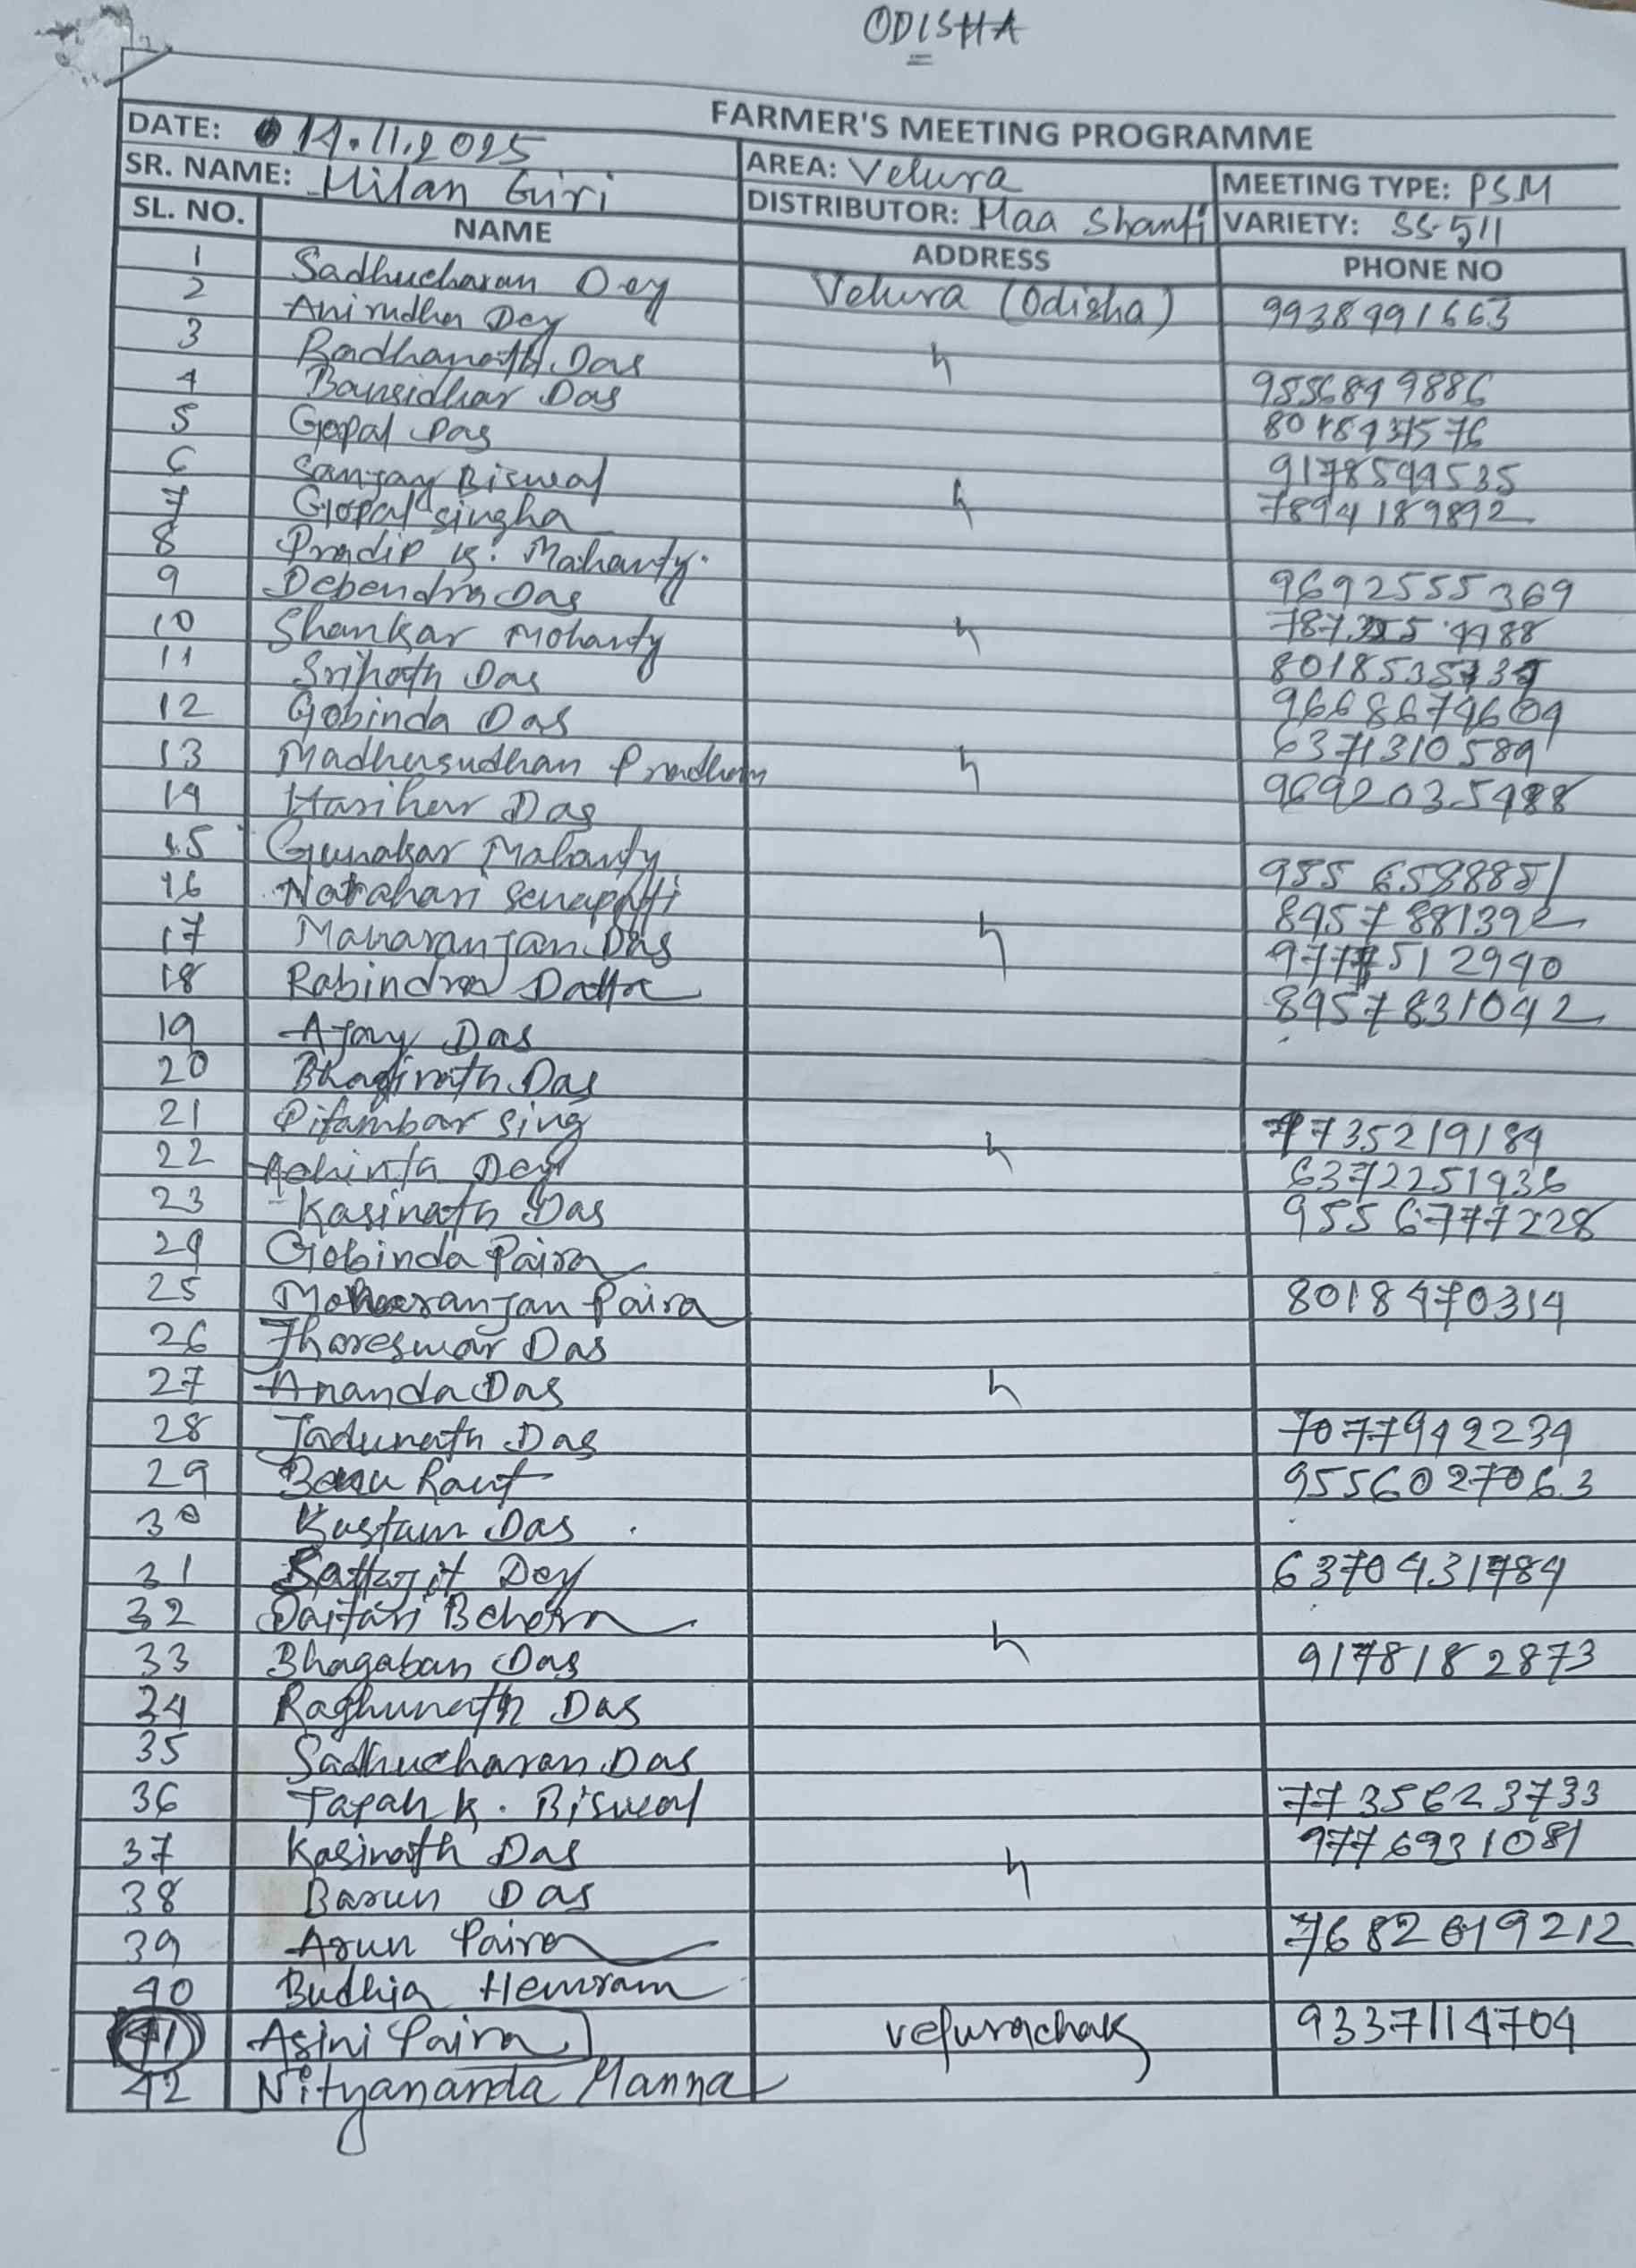 ODISHA
FARMER'S MEETING PROGRAMME
DATE: 14.11.2025
SR. NAME: Milan Giri
AREA: Velura
MEETING TYPE: PSM
DISTRIBUTOR: Maa Shanti
VARIETY: SS-511
SL. NO. NAME ADDRESS PHONE NO
1 Sadhucharan Dey Velura (Odisha) 9938991663
2 Anirudha Dey
3 Radhanath Das 9556849886
4 Bansidhar Das
5 Gopal Das 9178599535
6 Sanjay Biswal 7894189892
7 Gopal singha
8 Pradip K. Mahanty 9692555369
9 Debendra Das
10 Shankar Mohanty
11 Srinath Das
12 Gobinda Das 6371310589
13 Madhusudhan Pradhan
14 Harihar Das
15 Gunakar Mahanty
16 Narahari Senapati 8957881392
17 Manaranjan Das
18 Rabindra Datta 8957831042
19 Ajay Das
20 Bhagirath Das
21 Pitambar Sing 7735219184
22 Achinta Dey 6372251936
23 Kasinath Das 9556777228
24 Gobinda Paira
25 Manaranjan Paira 8018470314
26 Jhareswar Das
27 Ananda Das
28 Jadunath Das 7077942234
29 Raut 9556027063
30 Kustam Das
31 Sattajit Dey 6370431784
32 Daitari Behera
33 Bhagaban Das 9178182873
34 Raghunath Das
35 Sadhucharan Das
36 Tapan K. Biswal 7735623733
37 Kasinath Das 9776931081
38 Barun Das
39 Arun Paira 7682619212
40 Budhia Hemram
41 Asini Paira velurachak 9337114704
42 Nityananda Manna